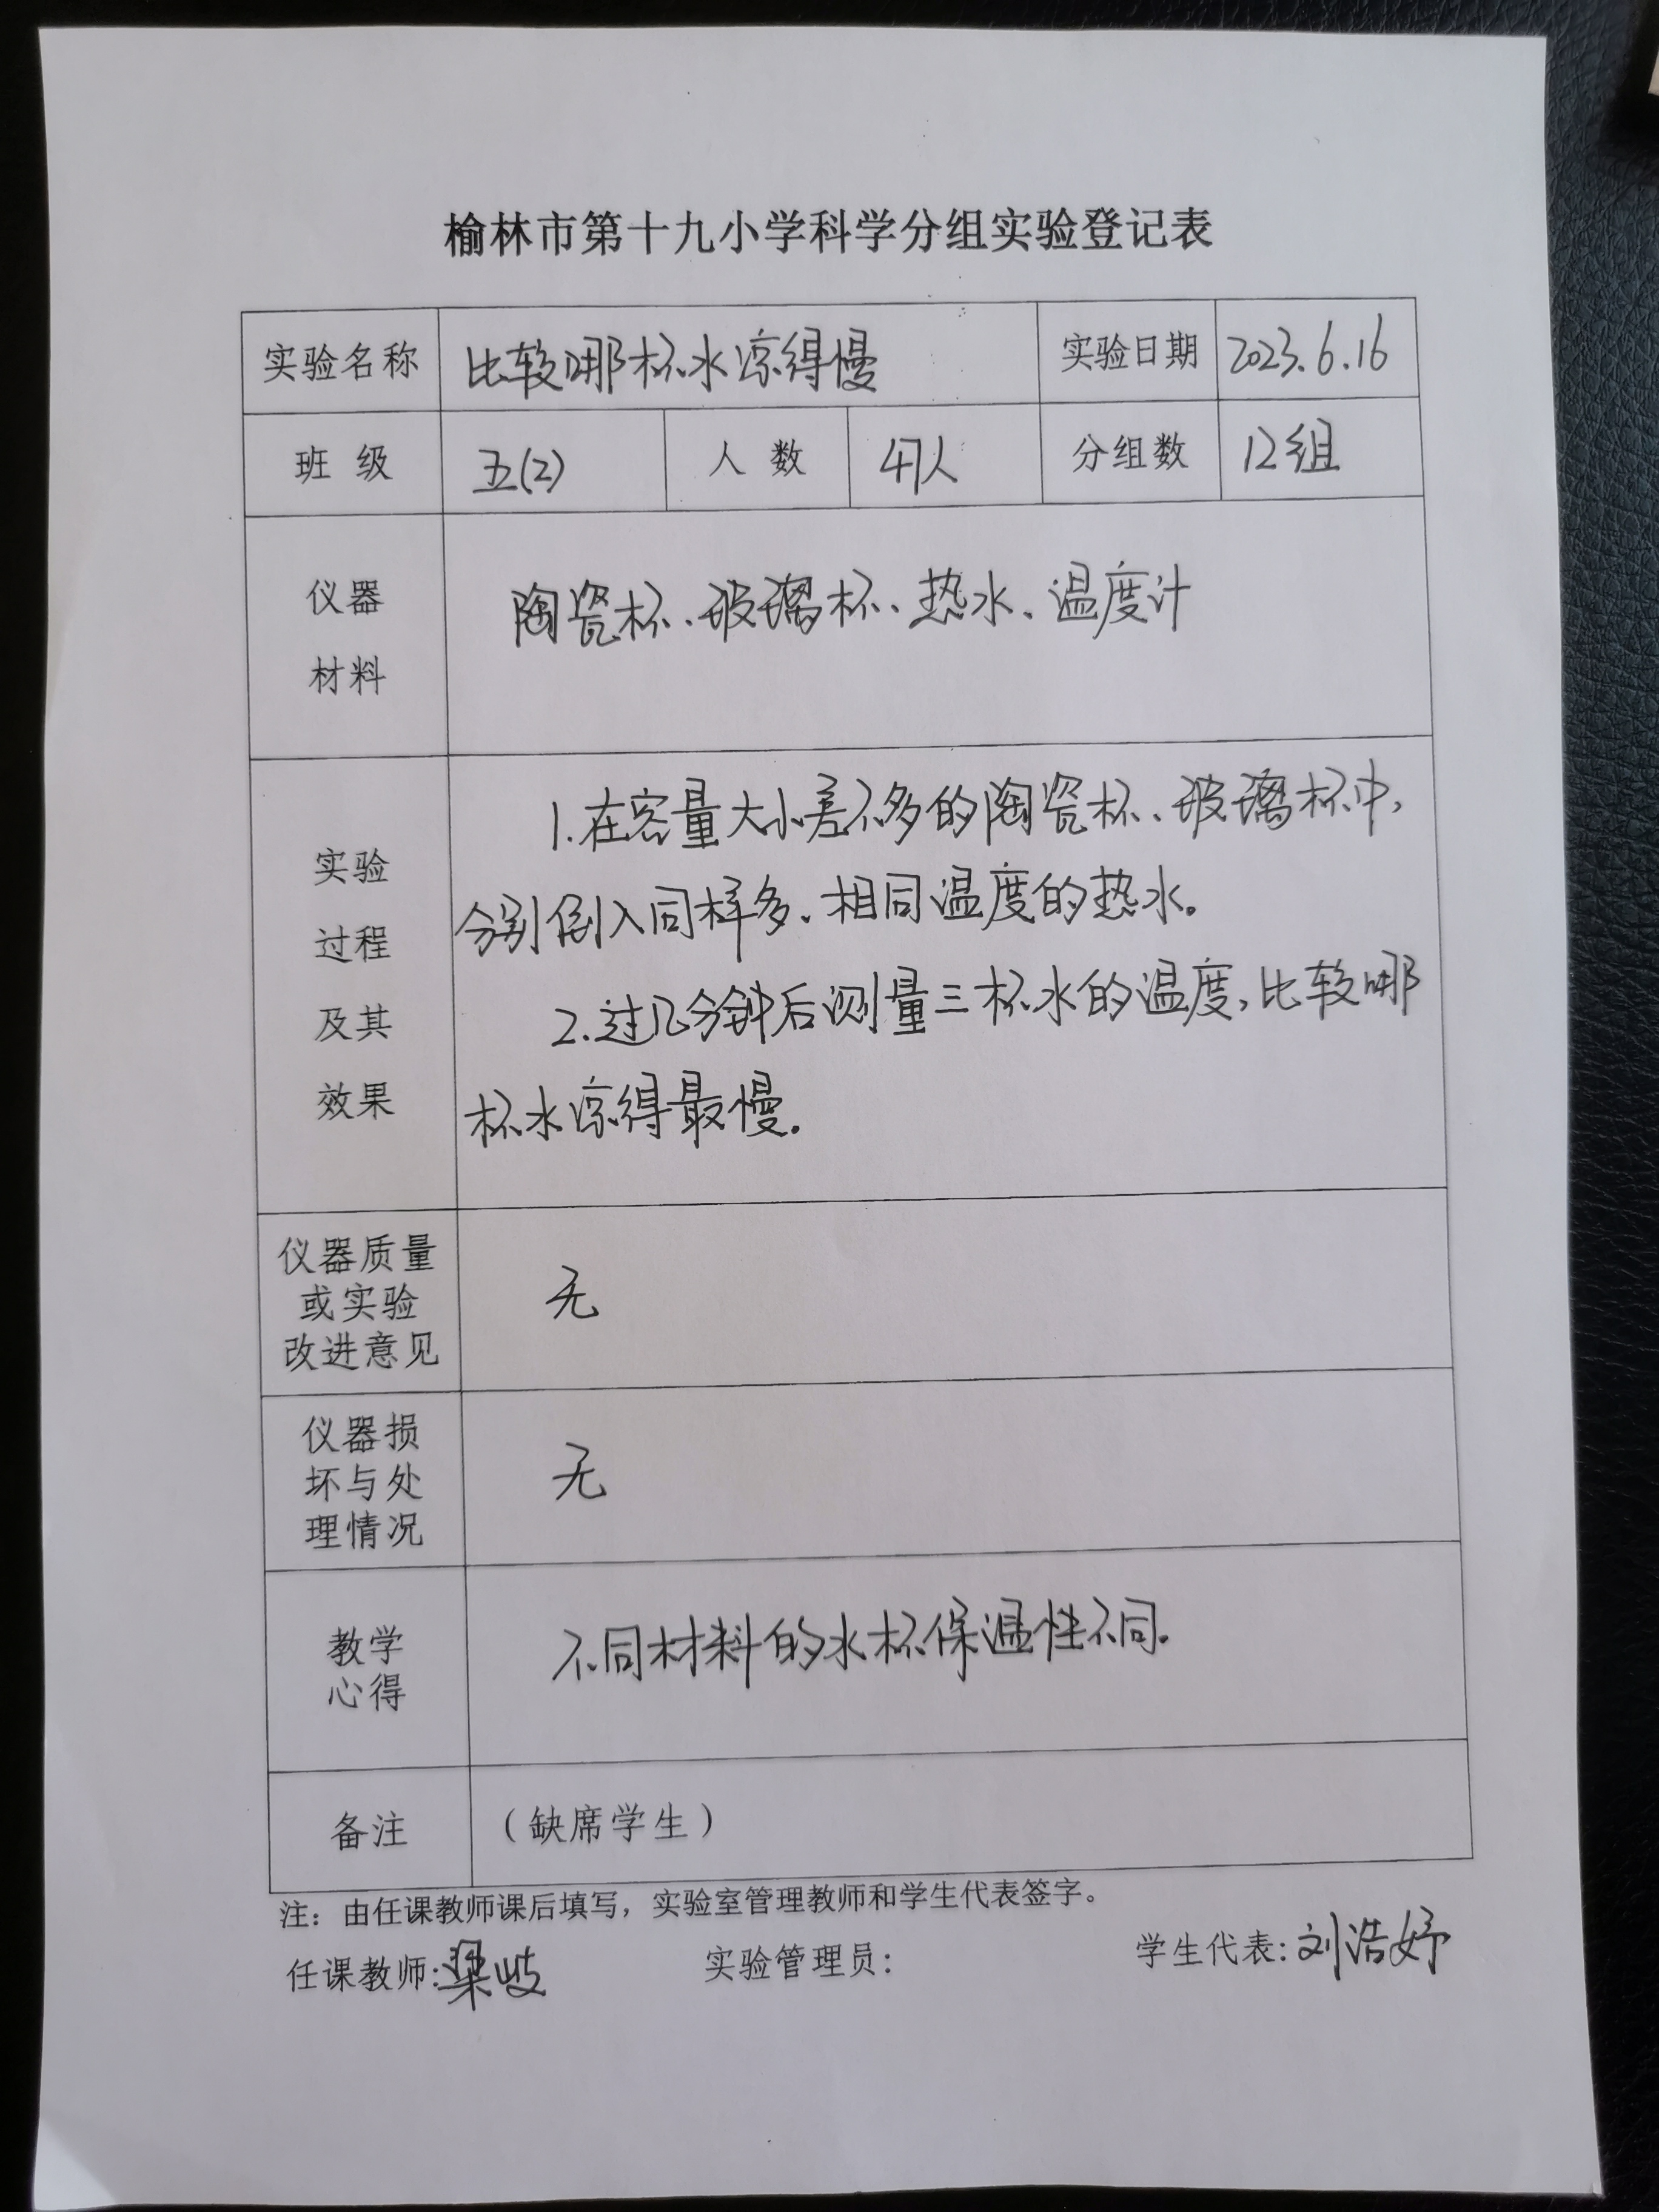 榆林市第十九小学科学分组实验登记表
实验名称 比较哪杯水凉得慢 实验日期 2023.6.16
班 级 五(2) 人 数 47人 分组数 12组
仪器
材料
陶瓷杯、玻璃杯、热水、温度计
实验
过程
及其
效果
1.在容量大小差不多的陶瓷杯、玻璃杯中,
分别倒入同样多、相同温度的热水。
2.过几分钟后测量三杯水的温度,比较哪
杯水凉得最慢。
仪器质量
或实验
改进意见
无
仪器损
坏与处
理情况
无
教学
心得
不同材料的水杯保温性不同。
备注 （缺席学生）
注：由任课教师课后填写，实验室管理教师和学生代表签字。
任课教师:梁岐 实验管理员: 学生代表:刘浩妤